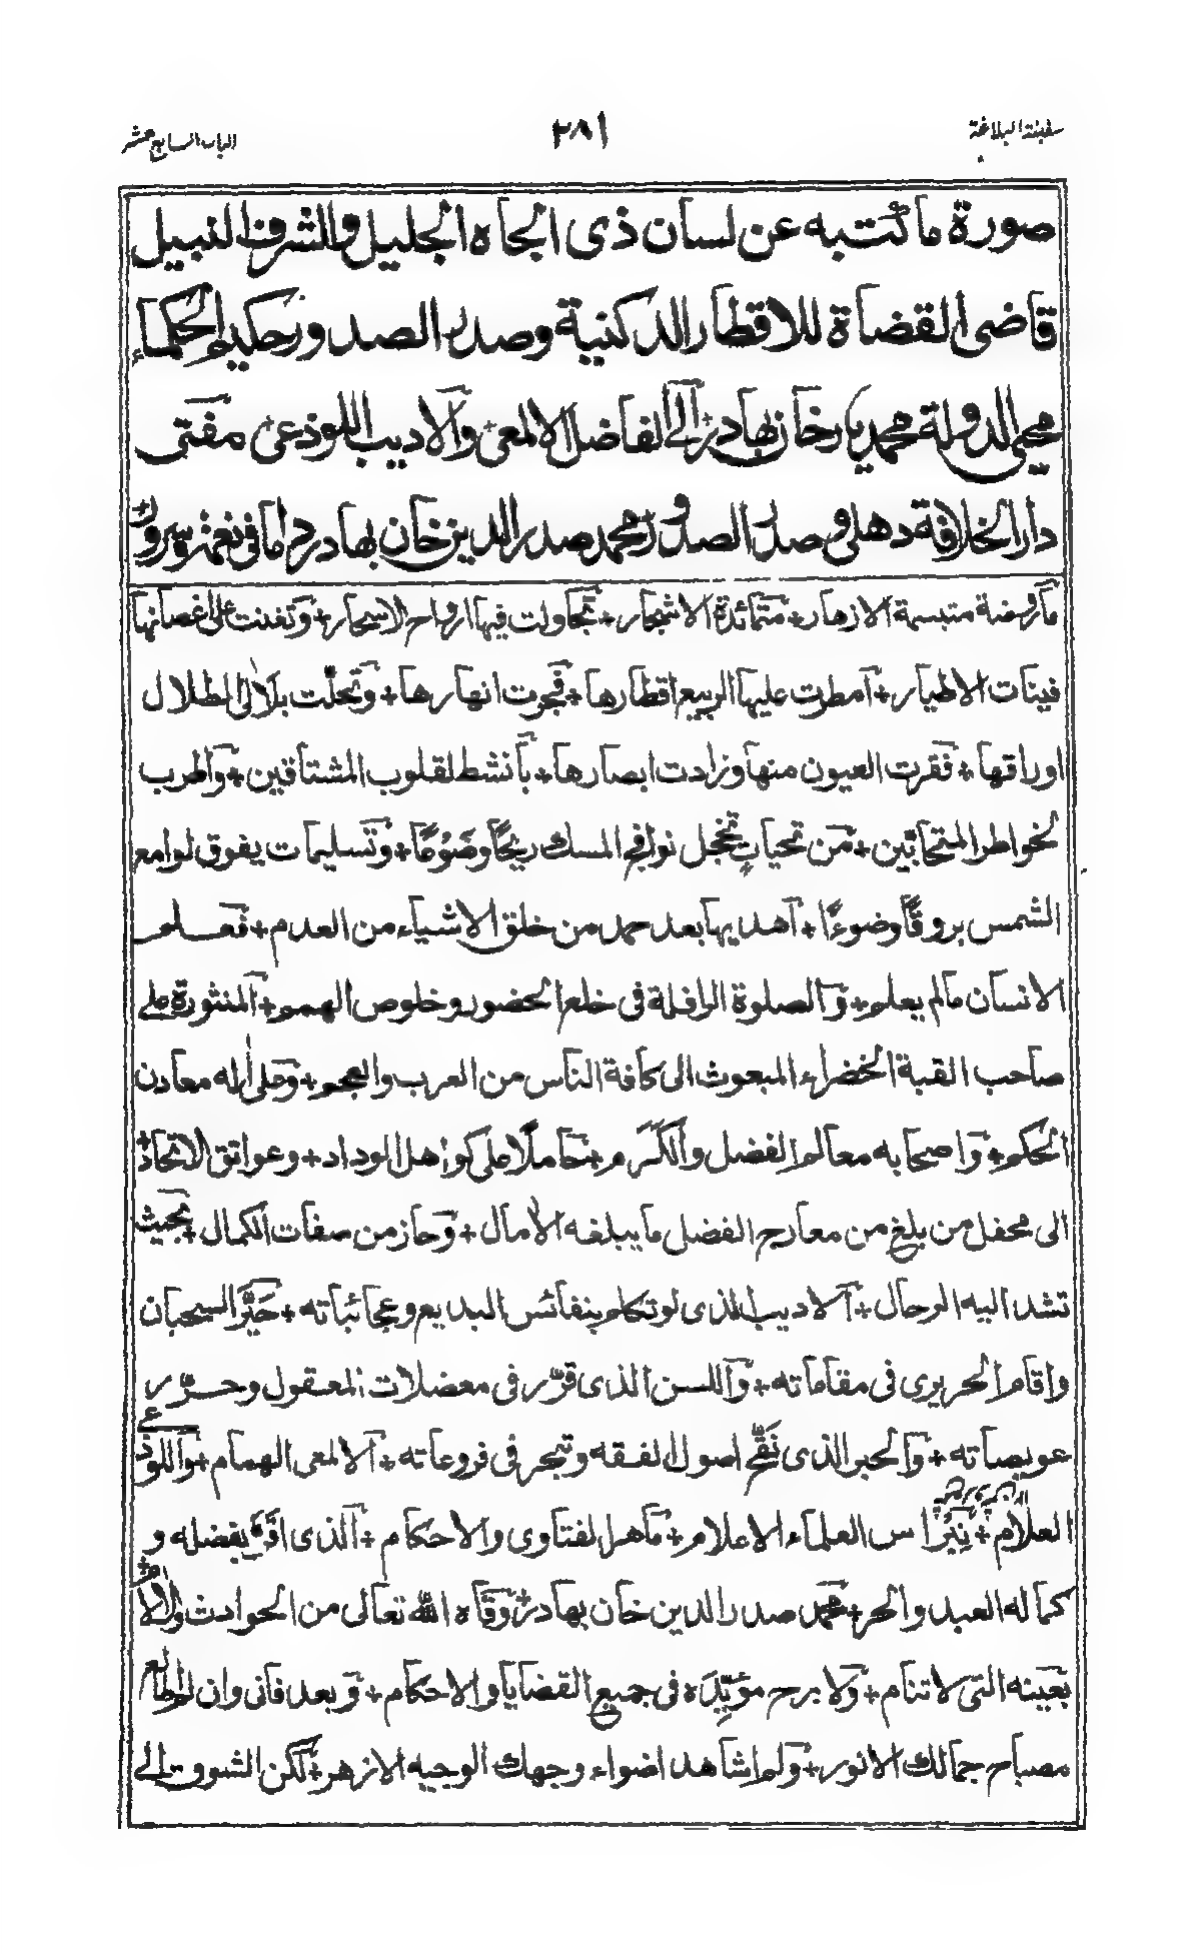 سفينة البلاغة
٢٨١
الباب السابع عشر
صورة ما كتبه عن لسان ذى الجاه الجليل والشرف النبيل
قاضى القضاة للاقطار الدكنية وصدر الصدور حكيم الحكماء
محيى الدولة محمد يار خان بهادر الى الفاضل الالمعى والاديب اللوذعى مفتى
دار الخلافة دهلى وصدر الصدور محمد صدر الدين خان بهادر داما فى نعم وسرور
ما روضة متبسمة الازهار + متمائدة الاشجار + تجاولت فيها ارواح الاسحار + وتغنت على اغصانها
قينات الاطيار + امطرت عليها الربيع اقطارها + فجرت انهارها + وتحلّت بلآلى الطلال
اوراقها + فقرت العيون منها وزادت ابصارها + بأنشط لقلوب المشتاقين + واطرب
لخواطر المتحابّين + من تحياتٍ تخجل نوافج المسك ريحًا وضَوْعًا + وتسليمات يفوق لوامع
الشمس بروقًا وضوءًا + اهديها بعد حمد من خلق الاشياء من العدم + فعلم
الانسان مالم يعلم + والصلوة الرافلة فى خلع الحضور وخلوص الهمم + المنثورة على
صاحب القبة الخضراء المبعوث الى كافة الناس من العرب والعجم + وعلى أله معادن
الحكم + واصحابه معالم الفضل والكَرَم + حاملًا على كواهل الوداد + وعواتق الاتحاد +
الى محفل من بلغ من معارج الفضل ما يبلغه الأمال + وحاز من صفات الكمال + بحيث
تشد اليه الرحال + الاديب الذى لو تكلم بنفائس البديع وعجائباته + حَيَّرَ السحبان
واقام الحريرى فى مقاماته + واللسن الذى قرّر فى معضلات المعقول وحرّر
عويصاته + والحبر الذى نَقَّح اصول الفقه وتبحر فى فروعاته + الالمعى الهمام + واللوذعى
العلام + نِبْرَاس العلماء الاعلام + ماهر الفتاوى والاحكام + الذى اقرّ بفضله و
كماله العبد والحر + محمد صدر الدين خان بهادر + وقاه الله تعالى من الحوادث والالام +
بعينه التى لا تنام + ولا برح مؤيّدَه فى جميع القضايا والاحكام + وبعد فانى وان لم اطالع
مصباح جمالك الانور + ولم اشاهد اضواء وجهك الوجيه الازهر + لكن الشوق الى